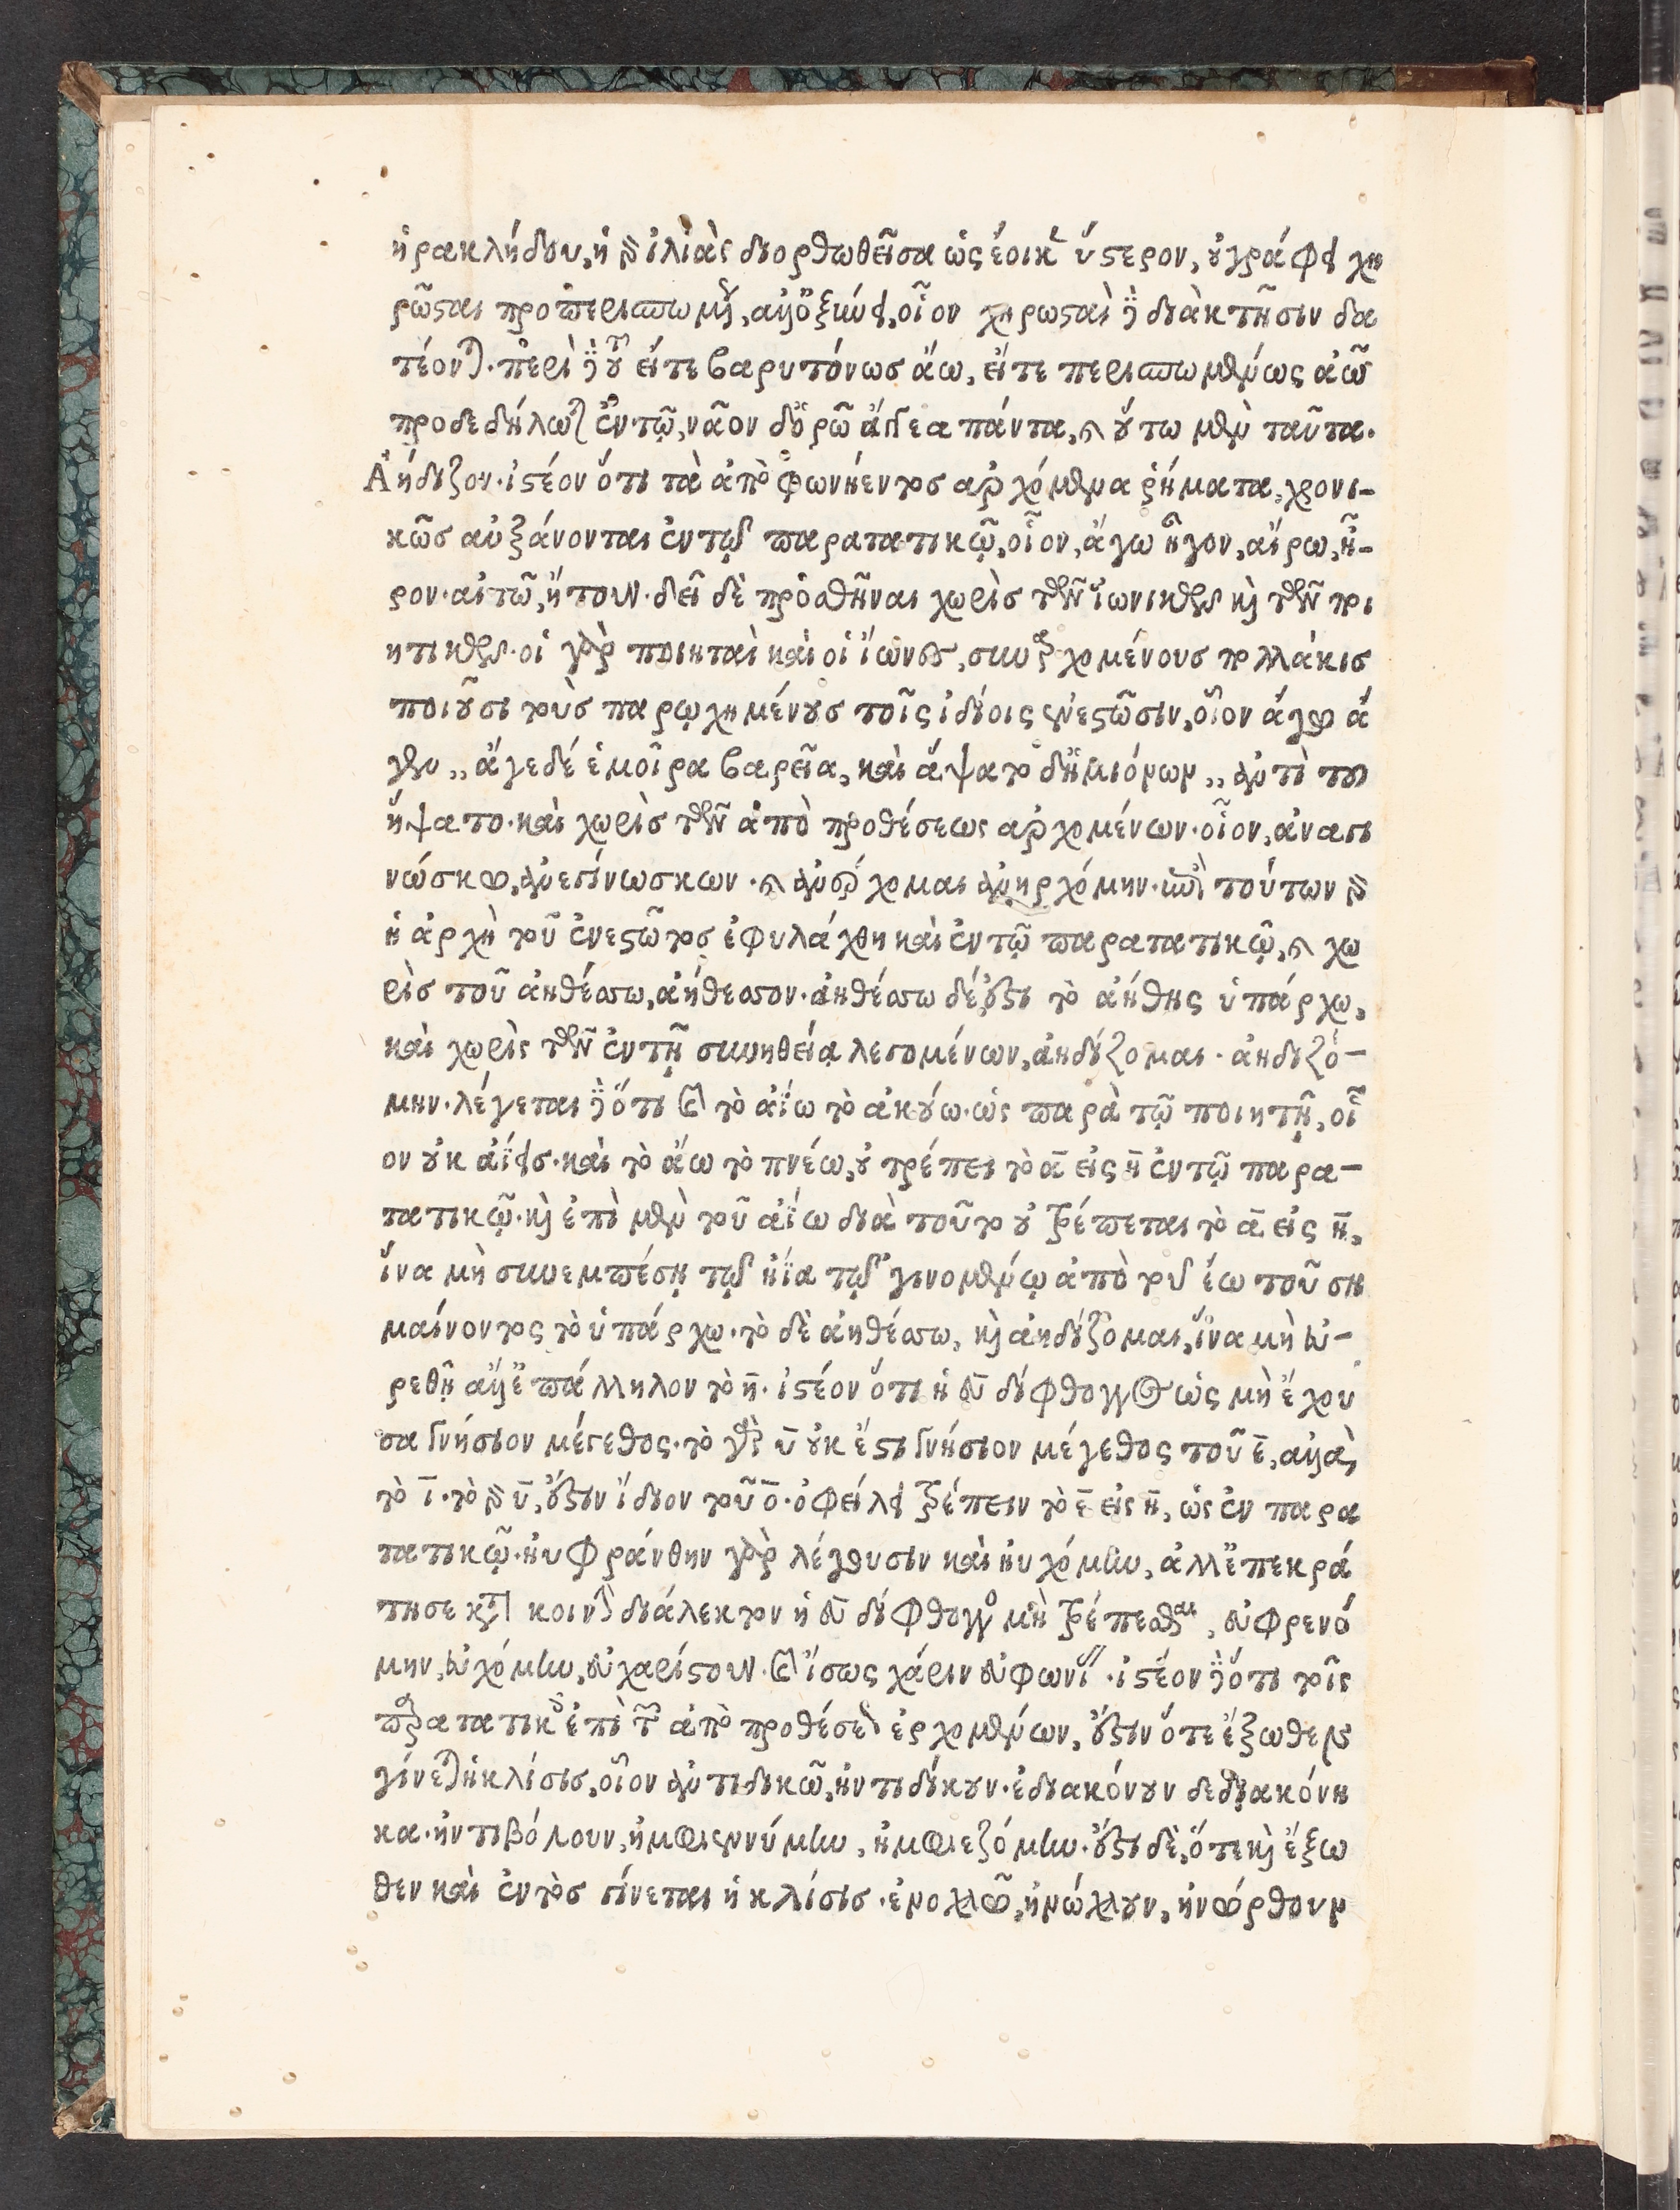 ἡρακλήδου, ἡ δ ἰλιὰς διορθωθεῖσα ὡς ἔοικε ὕστερον, οὐ γράφει χη
ρῶσται προπερισπωμ, ἀλλ ὀξύνει, οἷον χηρωσταὶ δὲ διὰ κτῆσιν δα
τέοντο. περὶ δὲ τοῦ εἴτε βαρυτόνωσ ἄω, εἴτε περισπωμένως ἀῶ
προδεδήλωται ἐν τῷ, νᾶον δ ὀρῶ ἄγγεα πάντα, καὶ οὕτω μὲν ταῦτα.
Ἀήδιζον. ἰστέον ὅτι τὰ ἀπὸ φωνήεντοσ ἀρχόμενα ῥήματα, χρονι-
κῶσ αὐξάνονται ἐν τῷ παρατατικῷ, οἷον, ἄγω ἦγον, αἴρω, ἦ-
ρον. αἰτῶ, ἤτουν. δεῖ δὲ προσθῆναι χωρὶσ τῶν ἰωνικῶν καὶ τῶν ποι
ητικῶν. οἱ γὰρ ποιηταὶ καὶ οἱ ἴωνες, συναρχομένουσ πολλάκισ
ποιοῦσι τοὺσ παρῳχημένουσ τοῖς ἰδίοις ἐνεστῶσιν, οἷον ἄγω ἄ
γον ,, ἄγε δέ ἑ μοῖρα βαρεῖα, καὶ ἅψατο δ ἡμιόνων ,, ἀντὶ του
ἥψατο. καὶ χωρὶσ τῶν ἀπὸ προθέσεως ἀρχομένων. οἷον, ἀναγι
νώσκω, ἀνεγίνωσκων. καὶ ἀνέρχομαι ἀνηρχόμην. ἐπὶ τούτων δ
ἡ ἀρχὴ τοῦ ἐνεστῶτοσ ἐφυλάχθη καὶ ἐν τῷ παρατατικῷ, καὶ χω
ρὶσ τοῦ ἀηθέσσω, ἀήθεσσον. ἀηθέσσω δέ ἐστι τὸ ἀήθης ὑπάρχω,
καὶ χωρὶς τῶν ἐν τῇ συνηθείᾳ λεγομένων, ἀηδίζομαι. ἀηδιζό-
μην. λέγεται δὲ ὅτι καὶ τὸ ἀΐω τὸ ἀκούω. ὡς παρὰ τῷ ποιητῇ, οἷ
ον οὐκ ἀΐεισ. καὶ τὸ ἄω τὸ πνέω, οὐ τρέπει τὸ ᾱ εἰς η̄ ἐν τῷ παρα-
τατικῷ. καὶ ἐπὶ μὲν τοῦ ἀΐω διὰ τοῦτο οὐ τρέπεται τὸ ᾱ εἰς η̄,
ἵνα μὴ συνεμπέσῃ τῷ ἤϊα τῷ γινομένῳ ἀπὸ τοῦ ἔω τοῦ ση
μαίνοντος τὸ ὑπάρχω. τὸ δὲ ἀηθέσσω, καὶ ἀηδίζομαι, ἵνα μὴ εὑ-
ρεθῇ ἀλλεπάλληλον τὸ η̄. ἰστέον ὅτι ἡ ευ δίφθογγος ὡς μὴ ἔχου
σα γνήσιον μέγεθος. τὸ γὰρ ῡ οὐκ ἔστι γνήσιον μέγεθος τοῦ ε̄, ἀλλὰ
τὸ ῑ. τὸ δ ῡ, ἐστιν ἴδιον τοῦ ο̄. ὀφείλει τρέπειν τὸ ε̄ εἰς η̄, ὡς ἐν παρα
τατικῷ. ηὐφράνθην γὰρ λέγουσιν καὶ ηὐχόμην, ἀλλ ἐπεκρά
τησε κατὰ κοινὴν διάλεκτον ἡ ευ δίφθογγος μὴ τρέπεσθαι, εὐφρενό
μην, εὐχόμην, εὐχαρίστουν. καὶ ἴσως χάριν εὐφωνί. ἰστέον δὲ ὅτι τοῖς
παρατατικοῖς ἐπὶ τῶν ἀπὸ προθέσεων ἐρχομένων, ἐστιν ὅτε ἔξωθεν
γίνεται ἡ κλίσισ, οἷον ἀντιδικῶ, ἠντιδίκουν. ἐδιακόνουν δεδιακόνη
κα. ἠντιβόλουν, ἠμφιεννύμην, ἠμφιεζόμην. ἐστι δὲ, ὅτε καὶ ἔξω
θεν καὶ ἐντὸσ γίνεται ἡ κλίσισ. ἐνοχλῶ, ἠνώχλουν, ἠνώρθουν